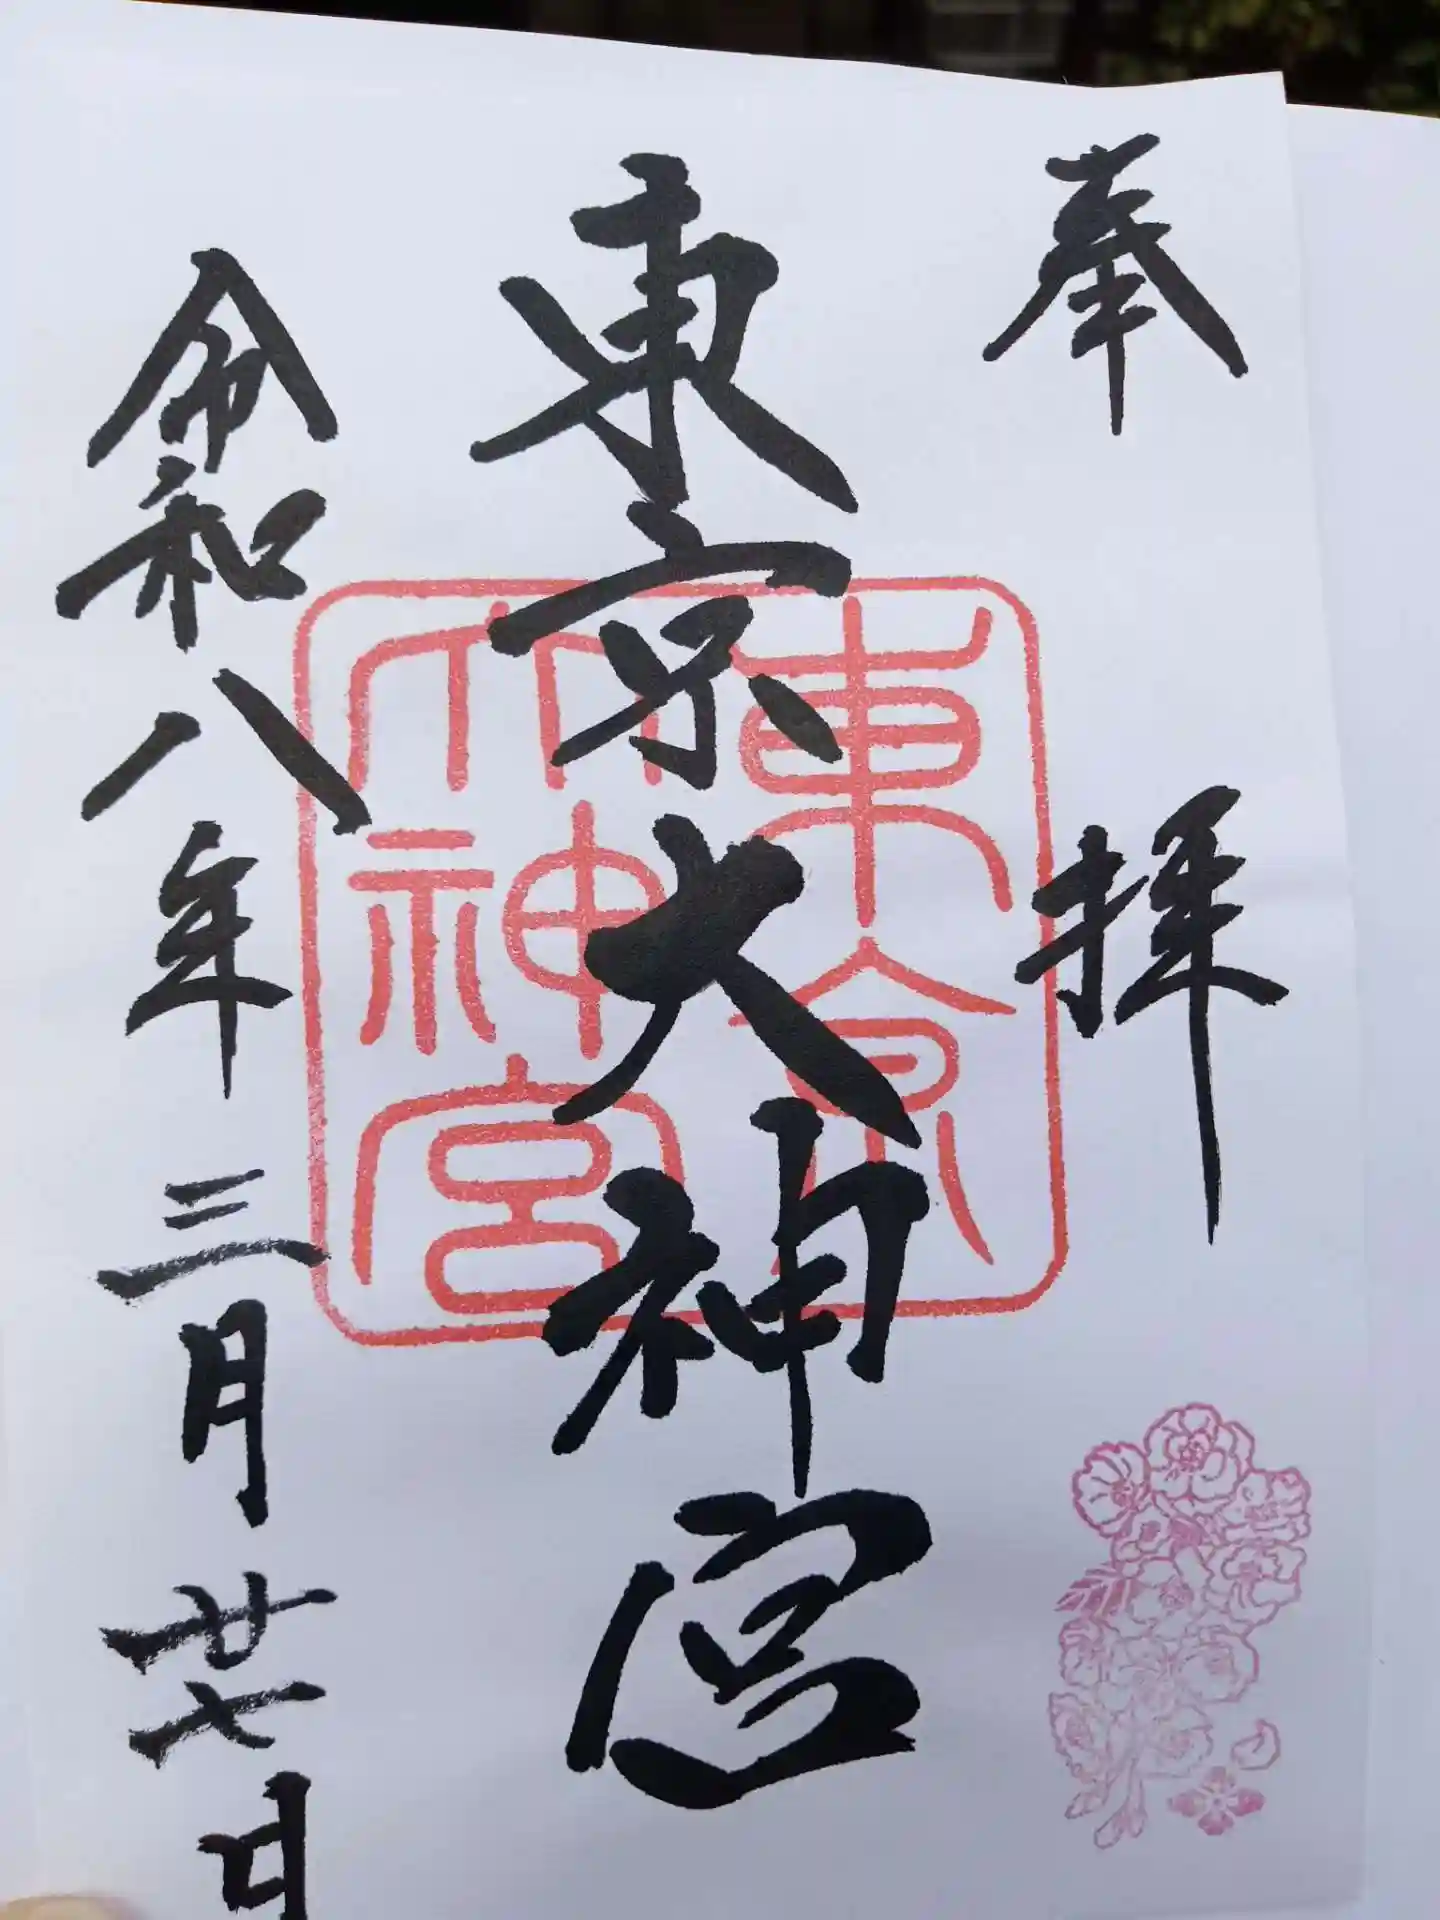 奉拝
東京大神宮
令和八年三月廿七日
東京
大神宮